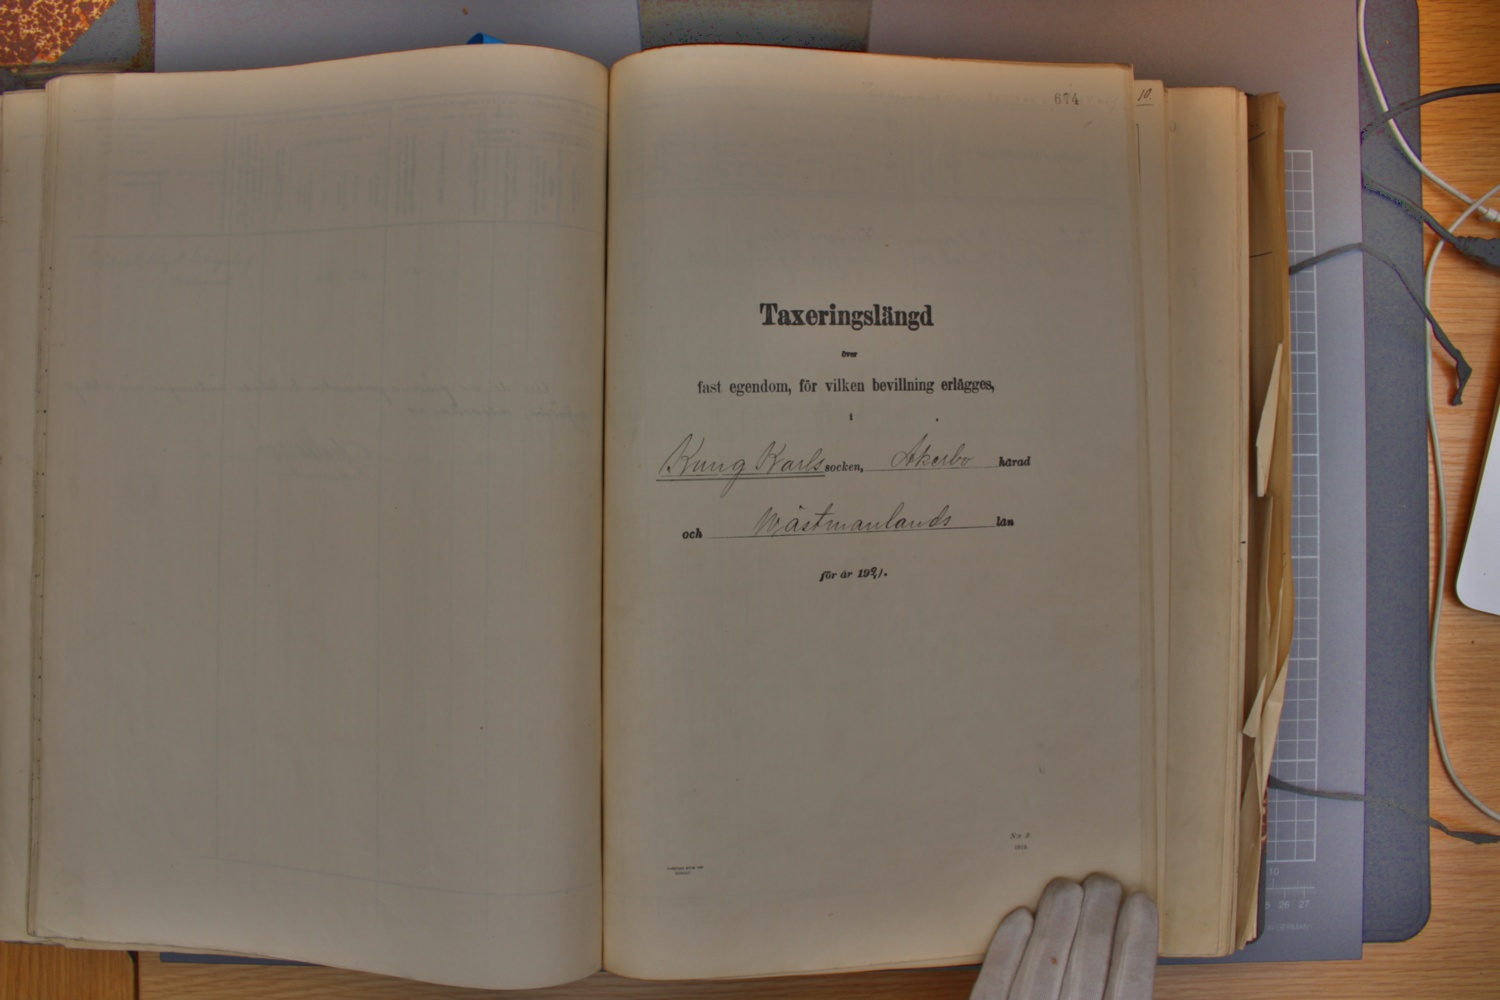 674
10.
Taxeringslängd
över
fast egendom, för vilken bevillning erlägges,
i
Kung Karls socken, Åkerbo härad
och Wästmanlands län
för år 1921.
N:r 9.
10
26 27